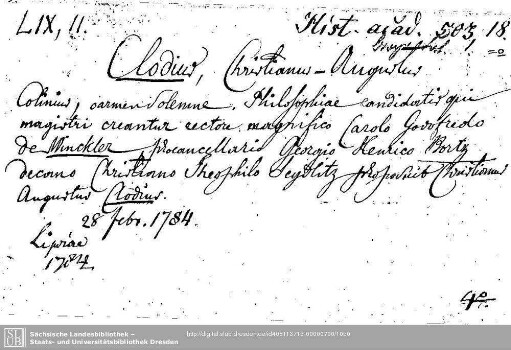 LIX, 11.
Hist. acad. 503, 18.
Clodius, Christianus-Augustus
Colinius, carmen solemne. Philosophiae candidatis qui
magistri creantur rectore magnifico Carolo Godofredo
de Winckler procancellario Georgio Henrico Bortz
decano Christiano Theophilo Seydlitz proposuit Christianus
Augustus Clodius.
28 febr. 1784.
Lipsiae
1784
4o.
Sächsische Landesbibliothek –
Staats- und Universitätsbibliothek Dresden